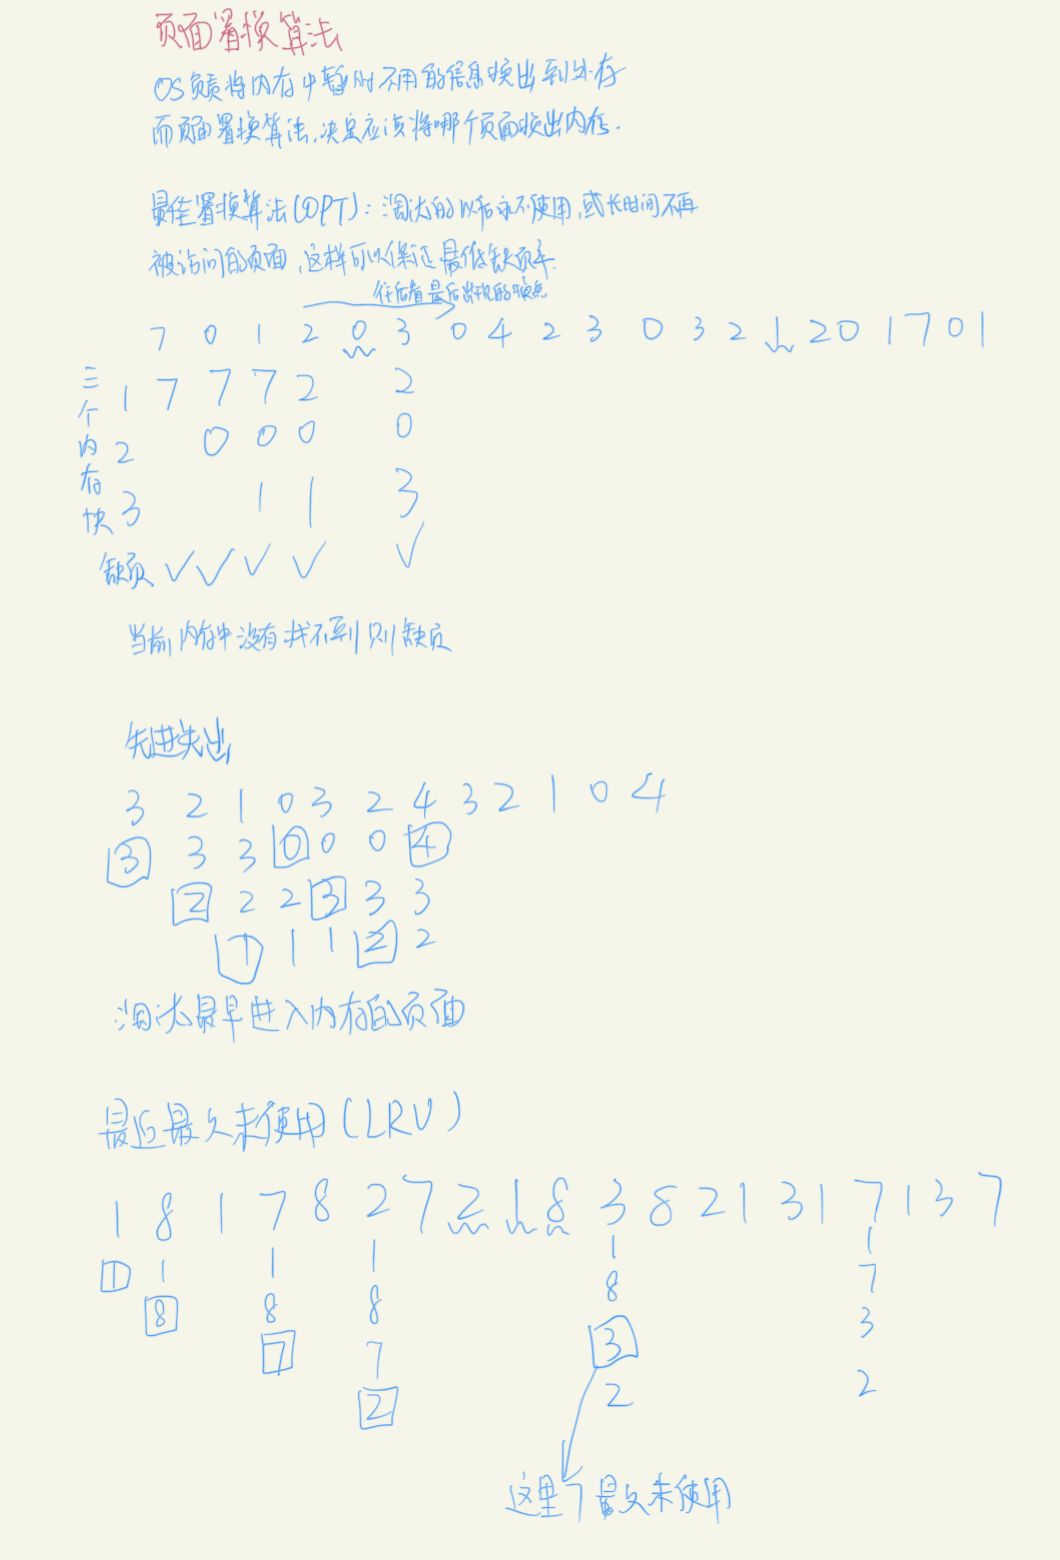 页面置换算法
OS负责将内存中暂时不用的信息换出到外存
而页面置换算法,决定应该将哪个页面换出内存.
最佳置换算法(OPT):淘汰的以后永不使用,或长时间不再
被访问的页面,这样可以保证最低缺页率.
往后看最后出现的
7 0 1 2 0 3 0 4 2 3 0 3 2 1 2 0 1 7 0 1
三个内存快
1 7 7 7 2 2
2 0 0 0 0
3 1 1 3
缺页 ✓ ✓ ✓ ✓ ✓
当前内存中没有找不到则缺页
先进先出
3 2 1 0 3 2 4 3 2 1 0 4
3 3 3 0 0 0 4
2 2 2 3 3 3
1 1 1 2 2
淘汰最早进入内存的页面
最近最久未使用(LRU)
1 8 1 7 8 2 7 2 1 8 3 8 2 1 3 1 7 1 3 7
1 1 1 1 1 1
8 8 8 8 7
7 7 3 3
2 2 2
这里7最久未使用